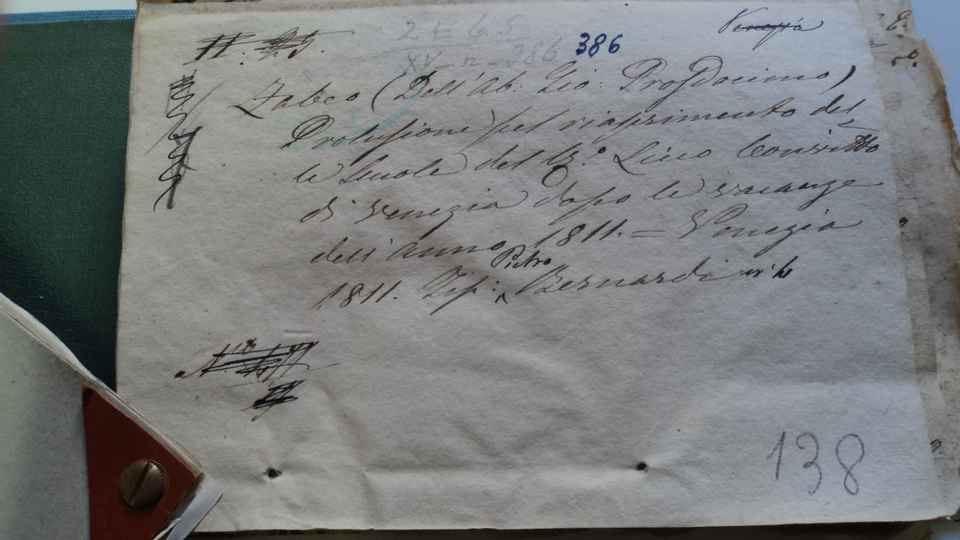 2 E 6. 5
XV n - 386 386 Venezia
Zabeo (Dell'Ab: Gio: Prosdocimo)
Prolusione pel riaprimento del-
le Scuole del R.º Liceo Convitto
di Venezia dopo le vacanze
dell'anno 1811. = Venezia
1811. Tip: Pietro Bernardi in 4º
138